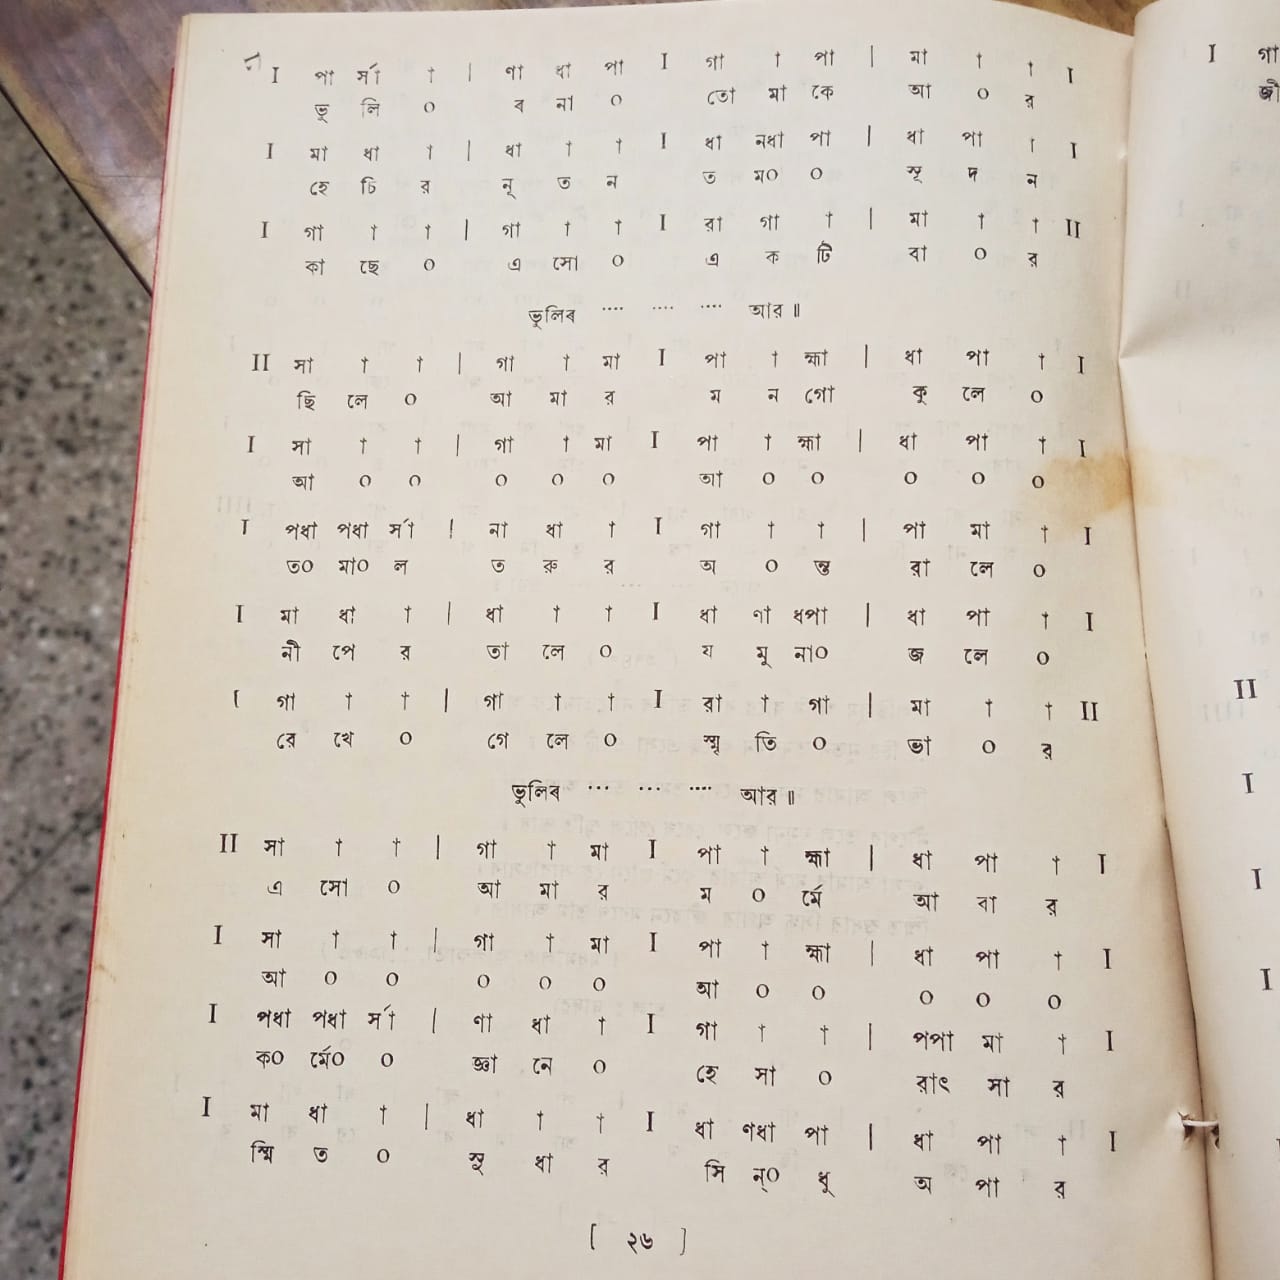 I পা র্সা † | ণা ধা পা I গা † পা | মা † † I
ভু লি ০ ৰ না ০ তো মা কে আ ০ র
I মা ধা † | ধা † † I ধা নধা পা | ধা পা † I
হে চি র নূ ত ন ত ম০ ০ সূ দ ন
I গা † † | গা † † I রা গা † | মা † † II
কা ছে ০ এ সো ০ এ ক টি বা ০ র
ভুলিৰ ···· ···· ···· আর॥
II সা † † | গা † মা I পা † হ্মা | ধা পা † I
ছি লে ০ আ মা র ম ন গো কু লে ০
I সা † † | গা † মা I পা † হ্মা | ধা পা † I
আ ০ ০ ০ ০ ০ আ ০ ০ ০ ০ ০
I পধা পধা র্সা | না ধা † I গা † † | পা মা † I
ত০ মা০ ল ত রু র অ ০ ন্ত রা লে ০
I মা ধা † | ধা † † I ধা ণা ধপা | ধা পা † I
নী পে র তা লে ০ য মু না০ জ লে ০
I গা † † | গা † † I রা † গা | মা † † II
রে খে ০ গে লে ০ স্মৃ তি ০ ভা ০ র
ভুলিৰ ··· ··· ···· আর॥
II সা † † | গা † মা I পা † হ্মা | ধা পা † I
এ সো ০ আ মা র ম ০ র্মে আ বা র
I সা † † | গা † মা I পা † হ্মা | ধা পা † I
আ ০ ০ ০ ০ ০ আ ০ ০ ০ ০ ০
I পধা পধা র্সা | ণা ধা † I গা † † | পপা মা † I
ক০ র্মে০ ০ জ্ঞা নে ০ হে সা ০ রাৎ সা র
I মা ধা † | ধা † † I ধা ণধা পা | ধা পা † I
স্মি ত ০ সু ধা র সি ন্০ ধু অ পা র
[ ২৬ ]
I গা
II
I
I
I